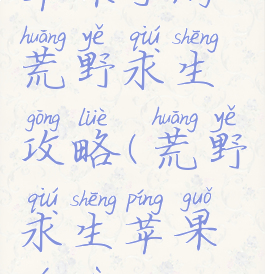 huāng yě qiú shēng
荒野求生
gōng lüè ( huāng yě
攻略(荒野
qiú shēng píng guǒ
求生苹果